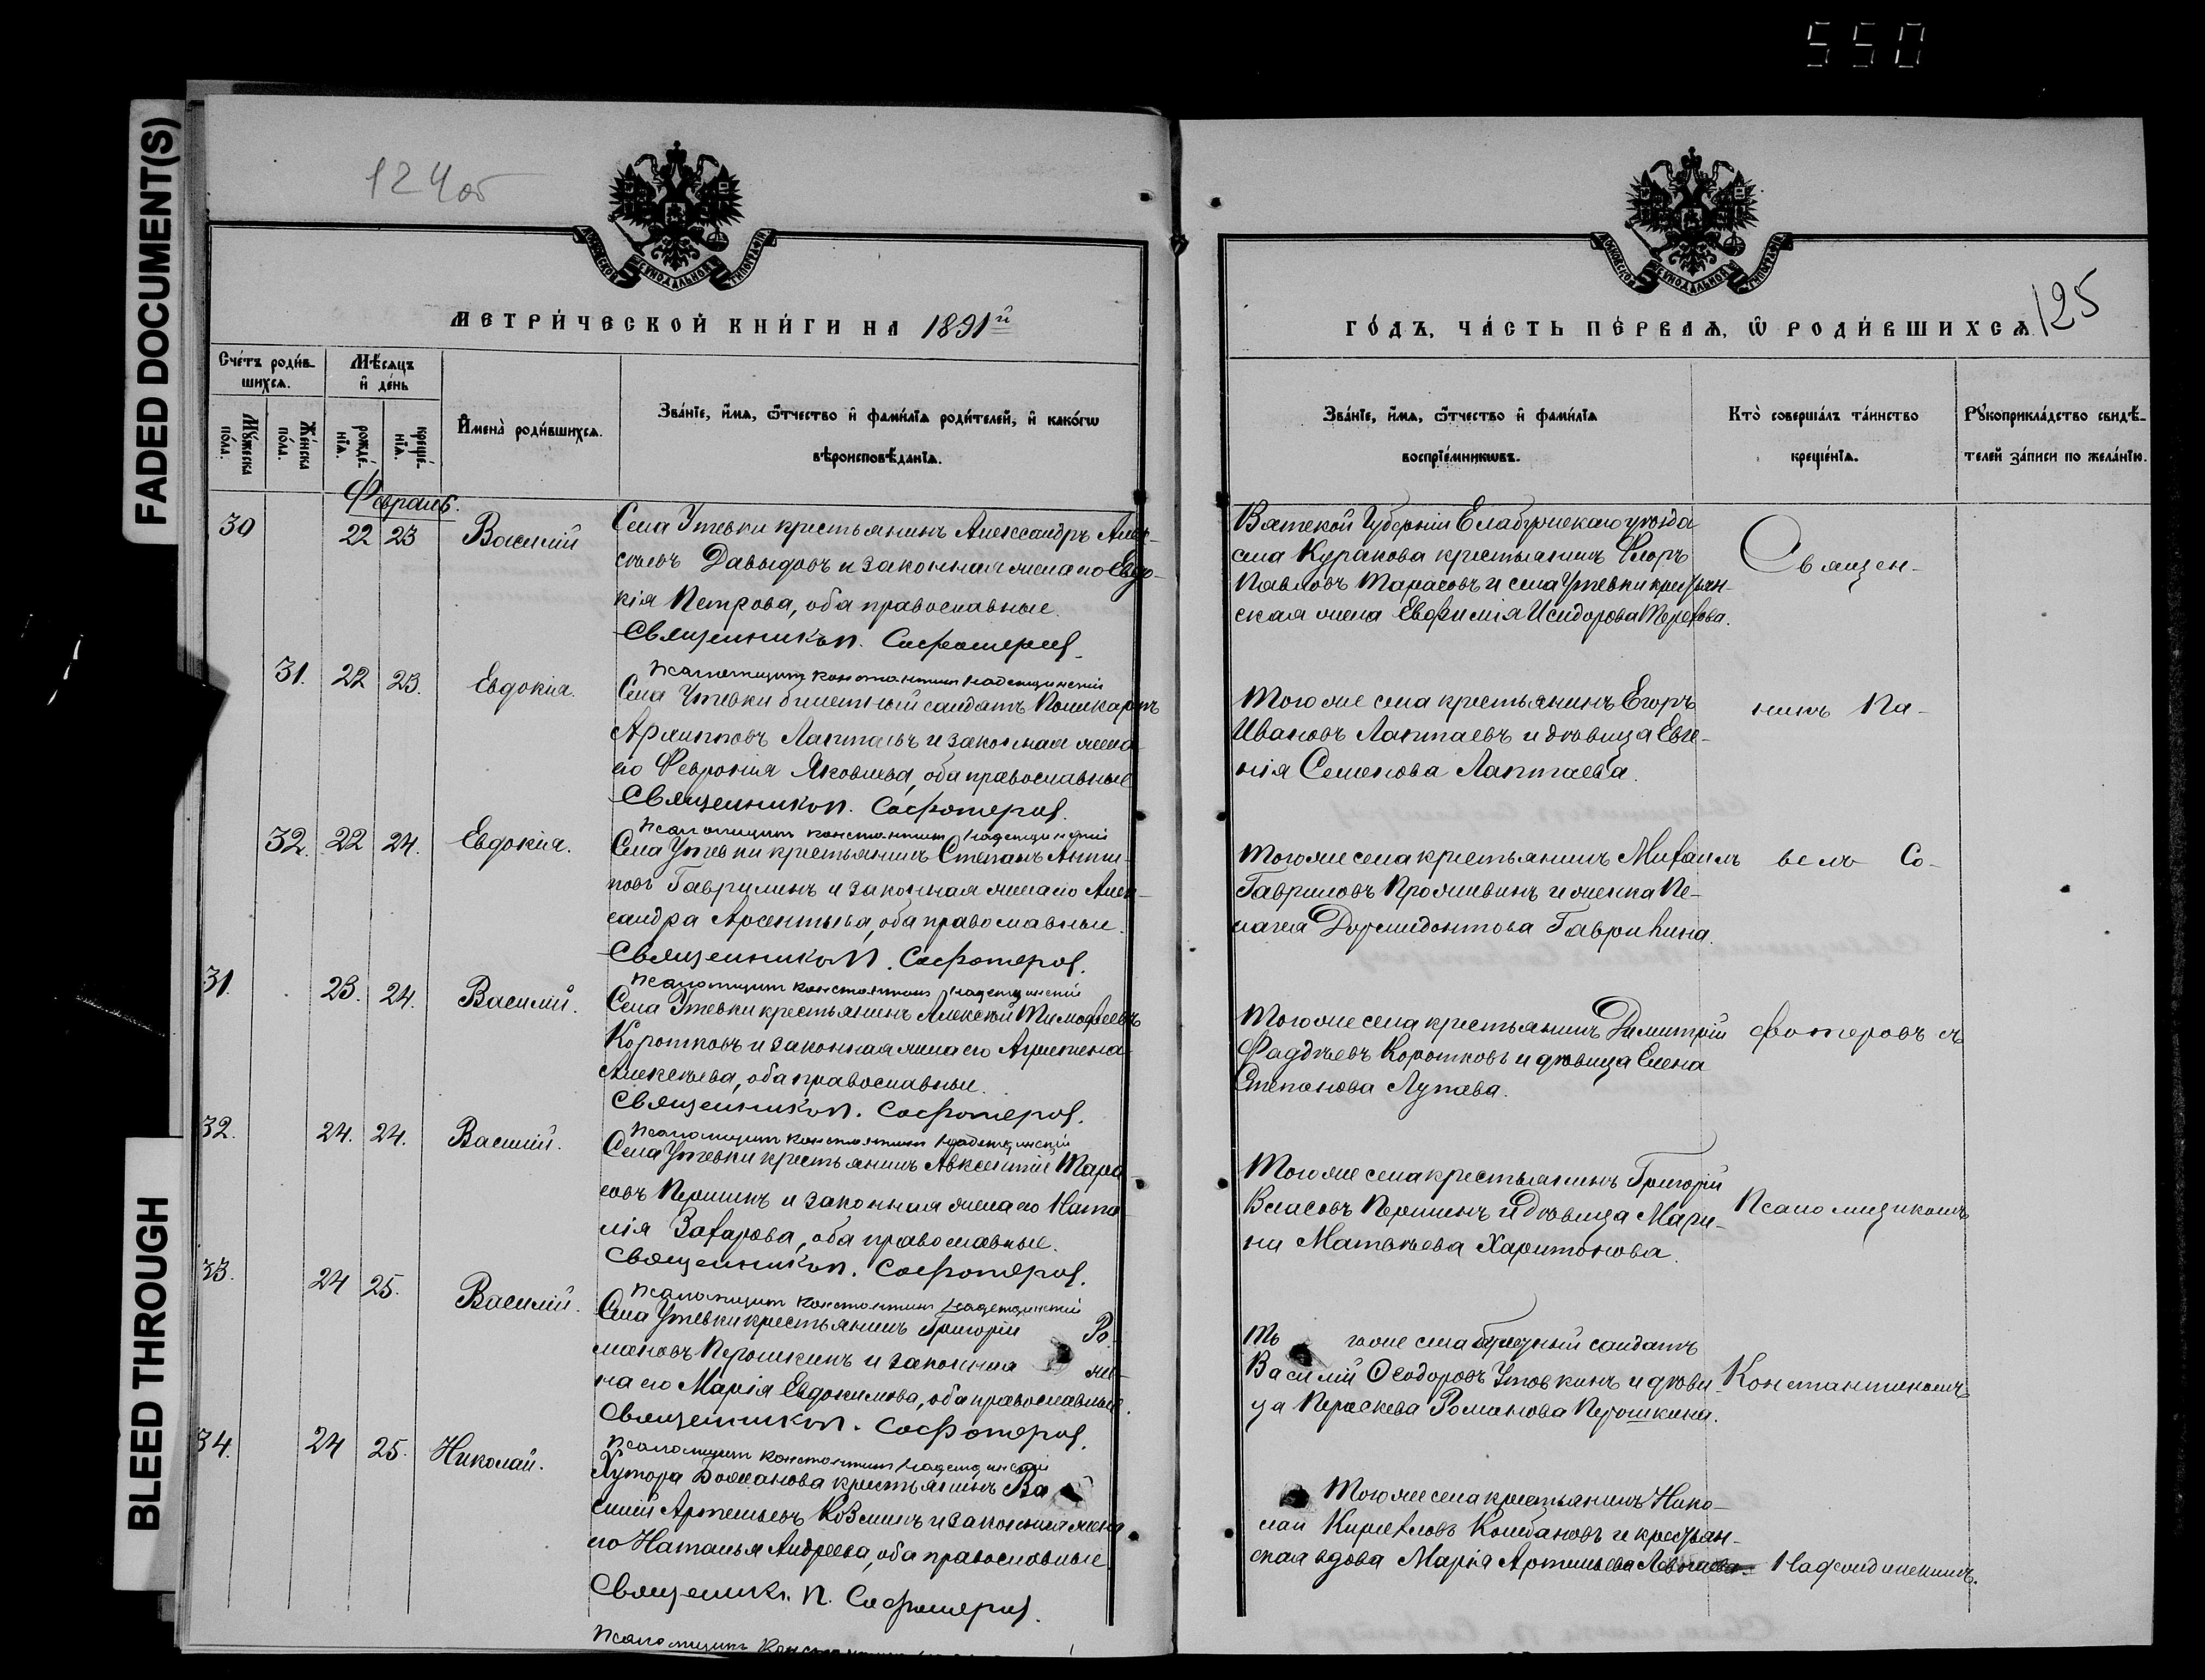 550
FADED DOCUMENT(S)
BLEED THROUGH
124 об
МОСКОВСКОЙ СУНОДАЛЬНОЙ ТИПОГРАФІИ
МЕТРИ́ЧЕСКОЙ КНИ́ГИ НА 1891й
Сче́тъ роди́в-
шихсѧ.
Мѣ́сѧцъ
и҆ де́нь
Мꙋ́жеска
по́ла.
Же́нска
по́ла.
рожде́-
нїѧ.
креще́-
нїѧ.
И҆мена̀ роди́вшихсѧ.
Зва́нїе, и҆́мѧ, ѻ҆́тчество и҆ фами́лїѧ роди́телей, и҆ како́гѡ
вѣроисповѣ́данїѧ.
Февраль.
30 22 23 Василій
Села Утевки крестьянинъ Александръ Алек-
сѣевъ Давыдовъ и законная жена его Евдо-
кія Петрова, оба православные.
Священникъ П. Софотеровъ.
Псаломщикъ Константинъ Надеждинскій
31. 22 23. Евдокія.
Села Утевки билетный солдатъ Поликарпъ
Архиповъ Лаптаевъ и законная жена
его Февронія Яковлева, оба православные
Священникъ П. Софотеровъ.
Псаломщикъ Константинъ Надеждинскій
32. 22 24. Евдокія.
Села Утевки крестьянинъ Степанъ Анти-
повъ Гаврилинъ и законная жена его Алек-
сандра Арсентьева, оба православные.
Священникъ П. Софотеровъ.
Псаломщикъ Константинъ Надеждинскій
31. 23. 24. Василій.
Села Утевки крестьянинъ Алексѣй Тимофеевъ
Коротковъ и законная жена его Агрипена
Алексѣева, оба православные.
Священникъ П. Софотеровъ.
Псаломщикъ Константинъ Надеждинскій
32. 24. 24. Василій.
Села Утевки крестьянинъ Авксентій Тара-
совъ Першинъ и законная жена его Ната-
лія Захарова, оба православные.
Священникъ П. Софотеровъ.
Псаломщикъ Константинъ Надеждинскій
33. 24 25. Василій.
Села Утевки крестьянинъ Григорій Ро-
мановъ Перошкинъ и законная же-
на его Марія Евдокимова, оба православные.
Священникъ П. Софотеровъ.
Псаломщикъ Константинъ Надеждинскій
34. 24 25. Николай.
Хутора Божанова крестьянинъ Ва-
силій Артемьевъ Козминъ и законная жена
его Наталья Андреева, оба православные
Священникъ П. Софотеровъ.
Псаломщикъ
МОСКОВСКОЙ СУНОДАЛЬНОЙ ТИПОГРАФІИ
125
ГО́ДЪ, ЧА́СТЬ ПЕ́РВАѦ, Ѽ РОДИ́ВШИХСѦ.
Зва́нїе, и҆́мѧ, ѻ҆́тчество и҆ фами́лїѧ
воспрїе́мникѡвъ.
Кто̀ соверша́лъ та́инство
креще́нїѧ.
Рꙋкоприкла́дство свидѣ́-
телей за́писи по жела́нїю.
Вятской Губерніи Елабужскаго уѣзда
села Куракова крестьянинъ Флоръ
Павловъ Тарасовъ и села Утевки крестьян-
ская жена Евфимія Исидорова Терехова.
Священ-
Того же села крестьянинъ Егоръ
Ивановъ Лаптаевъ и дѣвица Евге-
нія Семенова Лаптаева.
никъ Па-
Того же села крестьянинъ Михаилъ
Гавриловъ Проживинъ и женка Пе-
лагея Дормидонтова Гаврилина.
велъ Со-
Того же села крестьянинъ Димитрій
Фаддѣевъ Коротковъ и дѣвица Елена
Степанова Лупаева.
фотеровъ съ
Того же села крестьянинъ Григорій
Власовъ Першинъ и дѣвица Мари-
на Матвѣева Харитонова.
Псаломщикомъ
То го же села билетный солдатъ
Василій Ѳеодоровъ Утовкинъ и дѣви-
ца Параскева Романова Перошкина.
Константиномъ
Того же села крестьянинъ Нико-
лай Кириловъ Колбановъ и крестьян-
ская вдова Марія Артемьева
Надеждинскимъ.